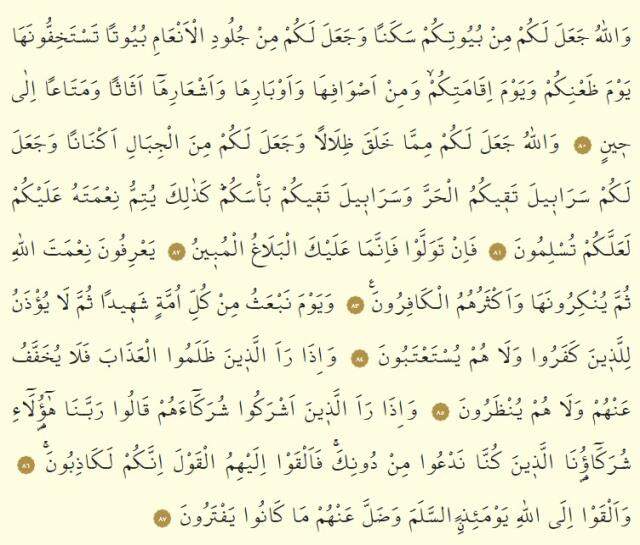 وَاللّٰهُ جَعَلَ لَكُمْ مِنْ بُيُوتِكُمْ سَكَنًا وَجَعَلَ لَكُمْ مِنْ جُلُودِ الْاَنْعَامِ بُيُوتًا تَسْتَخِفُّونَهَا
يَوْمَ ظَعْنِكُمْ وَيَوْمَ اِقَامَتِكُمْۙ وَمِنْ اَصْوَافِهَا وَاَوْبَارِهَا وَاَشْعَارِهَٓا اَثَاثًا وَمَتَاعًا اِلٰى
حٖينٍ ٨٠ وَاللّٰهُ جَعَلَ لَكُمْ مِمَّا خَلَقَ ظِلَالًا وَجَعَلَ لَكُمْ مِنَ الْجِبَالِ اَكْنَانًا وَجَعَلَ
لَكُمْ سَرَابٖيلَ تَقٖيكُمُ الْحَرَّ وَسَرَابٖيلَ تَقٖيكُمْ بَأْسَكُمْؕ كَذٰلِكَ يُتِمُّ نِعْمَتَهُ عَلَيْكُمْ
لَعَلَّكُمْ تُسْلِمُونَ ٨١ فَاِنْ تَوَلَّوْا فَاِنَّمَا عَلَيْكَ الْبَلَاغُ الْمُبٖينُ ٨٢ يَعْرِفُونَ نِعْمَتَ اللّٰهِ
ثُمَّ يُنْكِرُونَهَا وَاَكْثَرُهُمُ الْكَافِرُونَࣖ ٨٣ وَيَوْمَ نَبْعَثُ مِنْ كُلِّ اُمَّةٍ شَهٖيدًا ثُمَّ لَا يُؤْذَنُ
لِلَّذٖينَ كَفَرُوا وَلَا هُمْ يُسْتَعْتَبُونَ ٨٤ وَاِذَا رَاَ الَّذٖينَ ظَلَمُوا الْعَذَابَ فَلَا يُخَفَّفُ
عَنْهُمْ وَلَا هُمْ يُنْظَرُونَ ٨٥ وَاِذَا رَاَ الَّذٖينَ اَشْرَكُوا شُرَكَٓاءَهُمْ قَالُوا رَبَّنَا هٰٓؤُ۬لَٓاءِ
شُرَكَٓاؤُ۬نَا الَّذٖينَ كُنَّا نَدْعُوا مِنْ دُونِكَۚ فَاَلْقَوْا اِلَيْهِمُ الْقَوْلَ اِنَّكُمْ لَكَاذِبُونَۚ ٨٦
وَاَلْقَوْا اِلَى اللّٰهِ يَوْمَئِذٍۨ السَّلَمَ وَضَلَّ عَنْهُمْ مَا كَانُوا يَفْتَرُونَ ٨٧